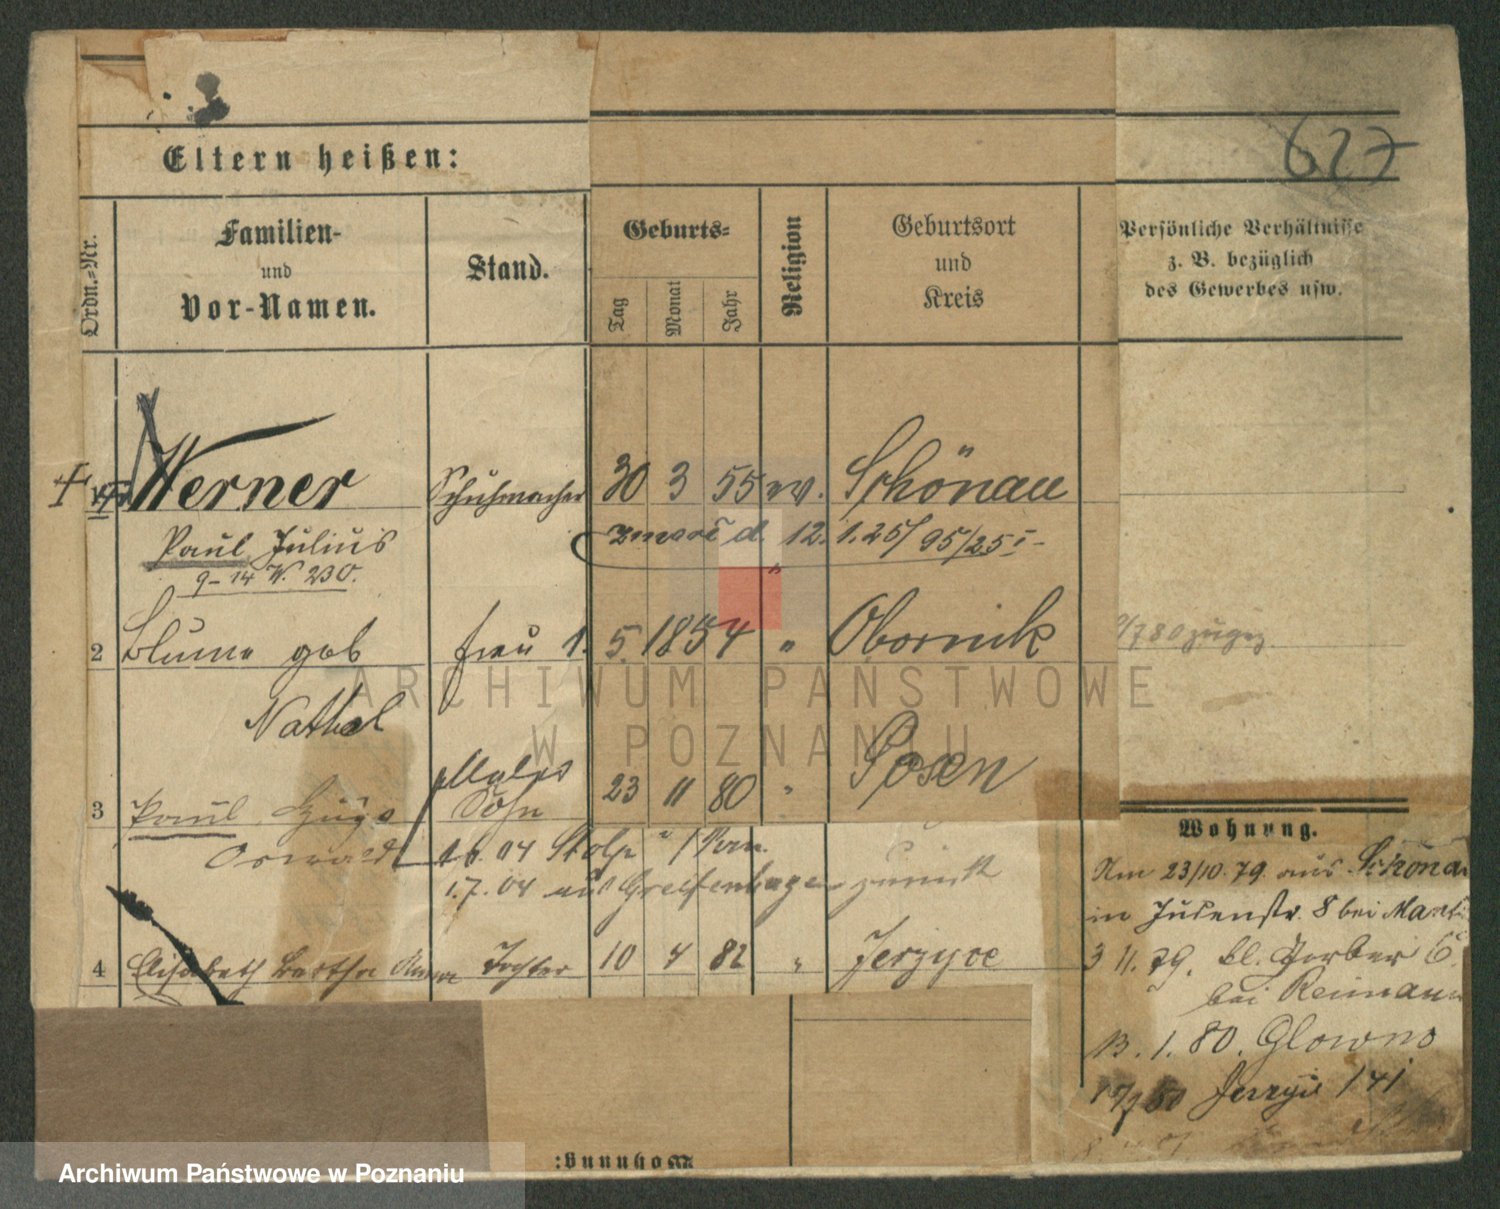 627
Eltern heißen:
Ordn.-Nr.
Familien-
und
Vor-Namen.
Stand.
Geburts-
Tag
Monat
Jahr
Religion
Geburtsort
und
Kreis
Persönliche Verhältnisse
z. B. bezüglich
des Gewerbes usw.
Werner Schuhmacher 30 3 55 ev. Schönau
Paul Julius
12. 1. 25/ 95/25
9-14 V. 230.
2 Blume geb Frau 1. 5. 1854 " Obornik
Nathal
3 Paul Hugo Sohn 23 11 80 " Posen
Oswald
04 Stolp
1.7.04 aus Greifenhagen zurück
4 Elisabeth Bertha Tochter 10 4 82 " Jerzyce
Wohnung.
Am 23/10. 79. aus Schönau
in Judenstr. 8 bei
3 11. 79. kl. Gerber 6.
bei Reimann
13. 1. 80. Glowno
80 Jerzyce 141
Wohnung:
ARCHIWUM PAŃSTWOWE
W POZNANIU
Archiwum Państwowe w Poznaniu